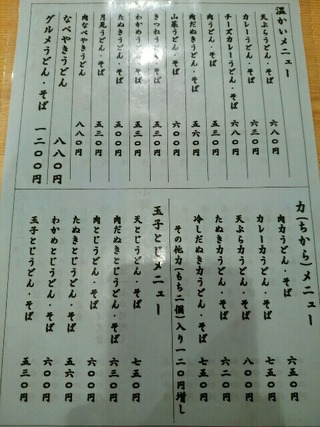 温かいメニュー
天ぷらうどん・そば 六八〇円
カレーうどん・そば 六三〇円
チーズカレーうどん・そば 六八〇円
肉うどん・そば 五三〇円
肉だぬきうどん・そば 五六〇円
山菜うどん・そば 六〇〇円
きつねうどん・そば 五三〇円
わかめうどん・そば 五三〇円
たぬきうどん・そば 五〇〇円
月見うどん・そば 五三〇円
肉なべやきうどん 八八〇円
なべやきうどん 八八〇円
グルメうどん・そば 一二〇〇円
力(ちから)メニュー
肉力うどん・そば 六五〇円
カレー力うどん・そば 七五〇円
天ぷら力うどん・そば 八〇〇円
たぬき力うどん・そば 六二〇円
冷しだぬき力うどん・そば 七五〇円
その他力(もち二個)入り一二〇円増し
玉子とじメニュー
天とじうどん・そば 七五〇円
肉だぬきとじうどん・そば 六三〇円
肉とじうどん・そば 六〇〇円
たぬきとじうどん・そば 五六〇円
わかめとじうどん・そば 六〇〇円
玉子とじうどん・そば 五三〇円